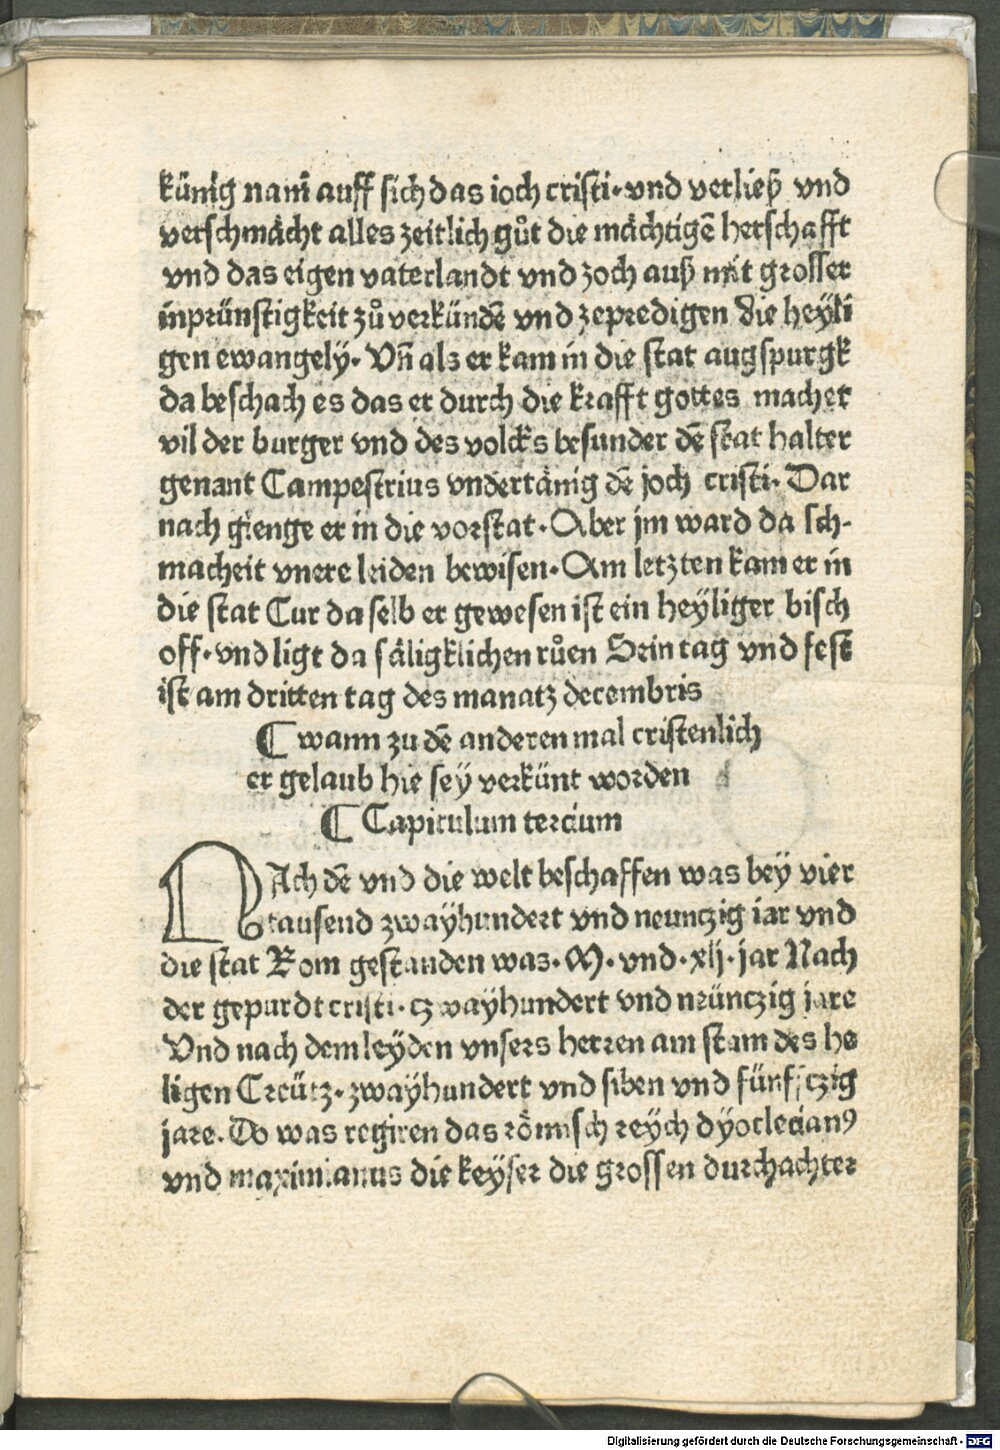 künig nam auff sich das ioch cristi·vnd verließ vnd
verschmächt alles zeitlich gůt die mächtigē herschafft
vnd das eigen vaterlandt vnd zoch auß mit grosser
inprünstigkeit zů verkündē vnd zepredigen die heyli
gen ewangelÿ· Vn̄ als er kam in die stat augspurgk
da beschach es das er durch die krafft gottes machet
vil der burger vnd des volcks besunder dē stat halter
genant Campestrius vndertänig dē joch cristi· Dar
nach gienge er in die vorstat· Aber jm ward da sch-
macheit vnere leiden bewisen· Am letzten kam er in
die stat Cur da selb er gewesen ist ein heÿliger bisch
off·vnd ligt da säligklichen růen Sein tag vnd fest
ist am dritten tag des manatz decembris
¶ wann zu dē anderen mal cristenlich
er gelaub hie seÿ verkünt worden
¶ Capitulum tercium
NAch dē vnd die welt beschaffen was bey vier
tausend zwaÿhundert vnd neunczig iar vnd
die stat Rom gestanden was· M· vnd·xlj·jar Nach
der gepurdt cristi·czwaÿhundert vnd neünczig jare
Vnd nach dem leÿden vnsers herren am stam des he
ligen Creütz·zwaÿhundert vnd siben vnd fünfczig
jare· Do was regiren das römisch reÿch dÿoclecianꝰ
vnd maximianus die keÿser die grossen durchachter
Digitalisierung gefördert durch die Deutsche Forschungsgemeinschaft - DFG